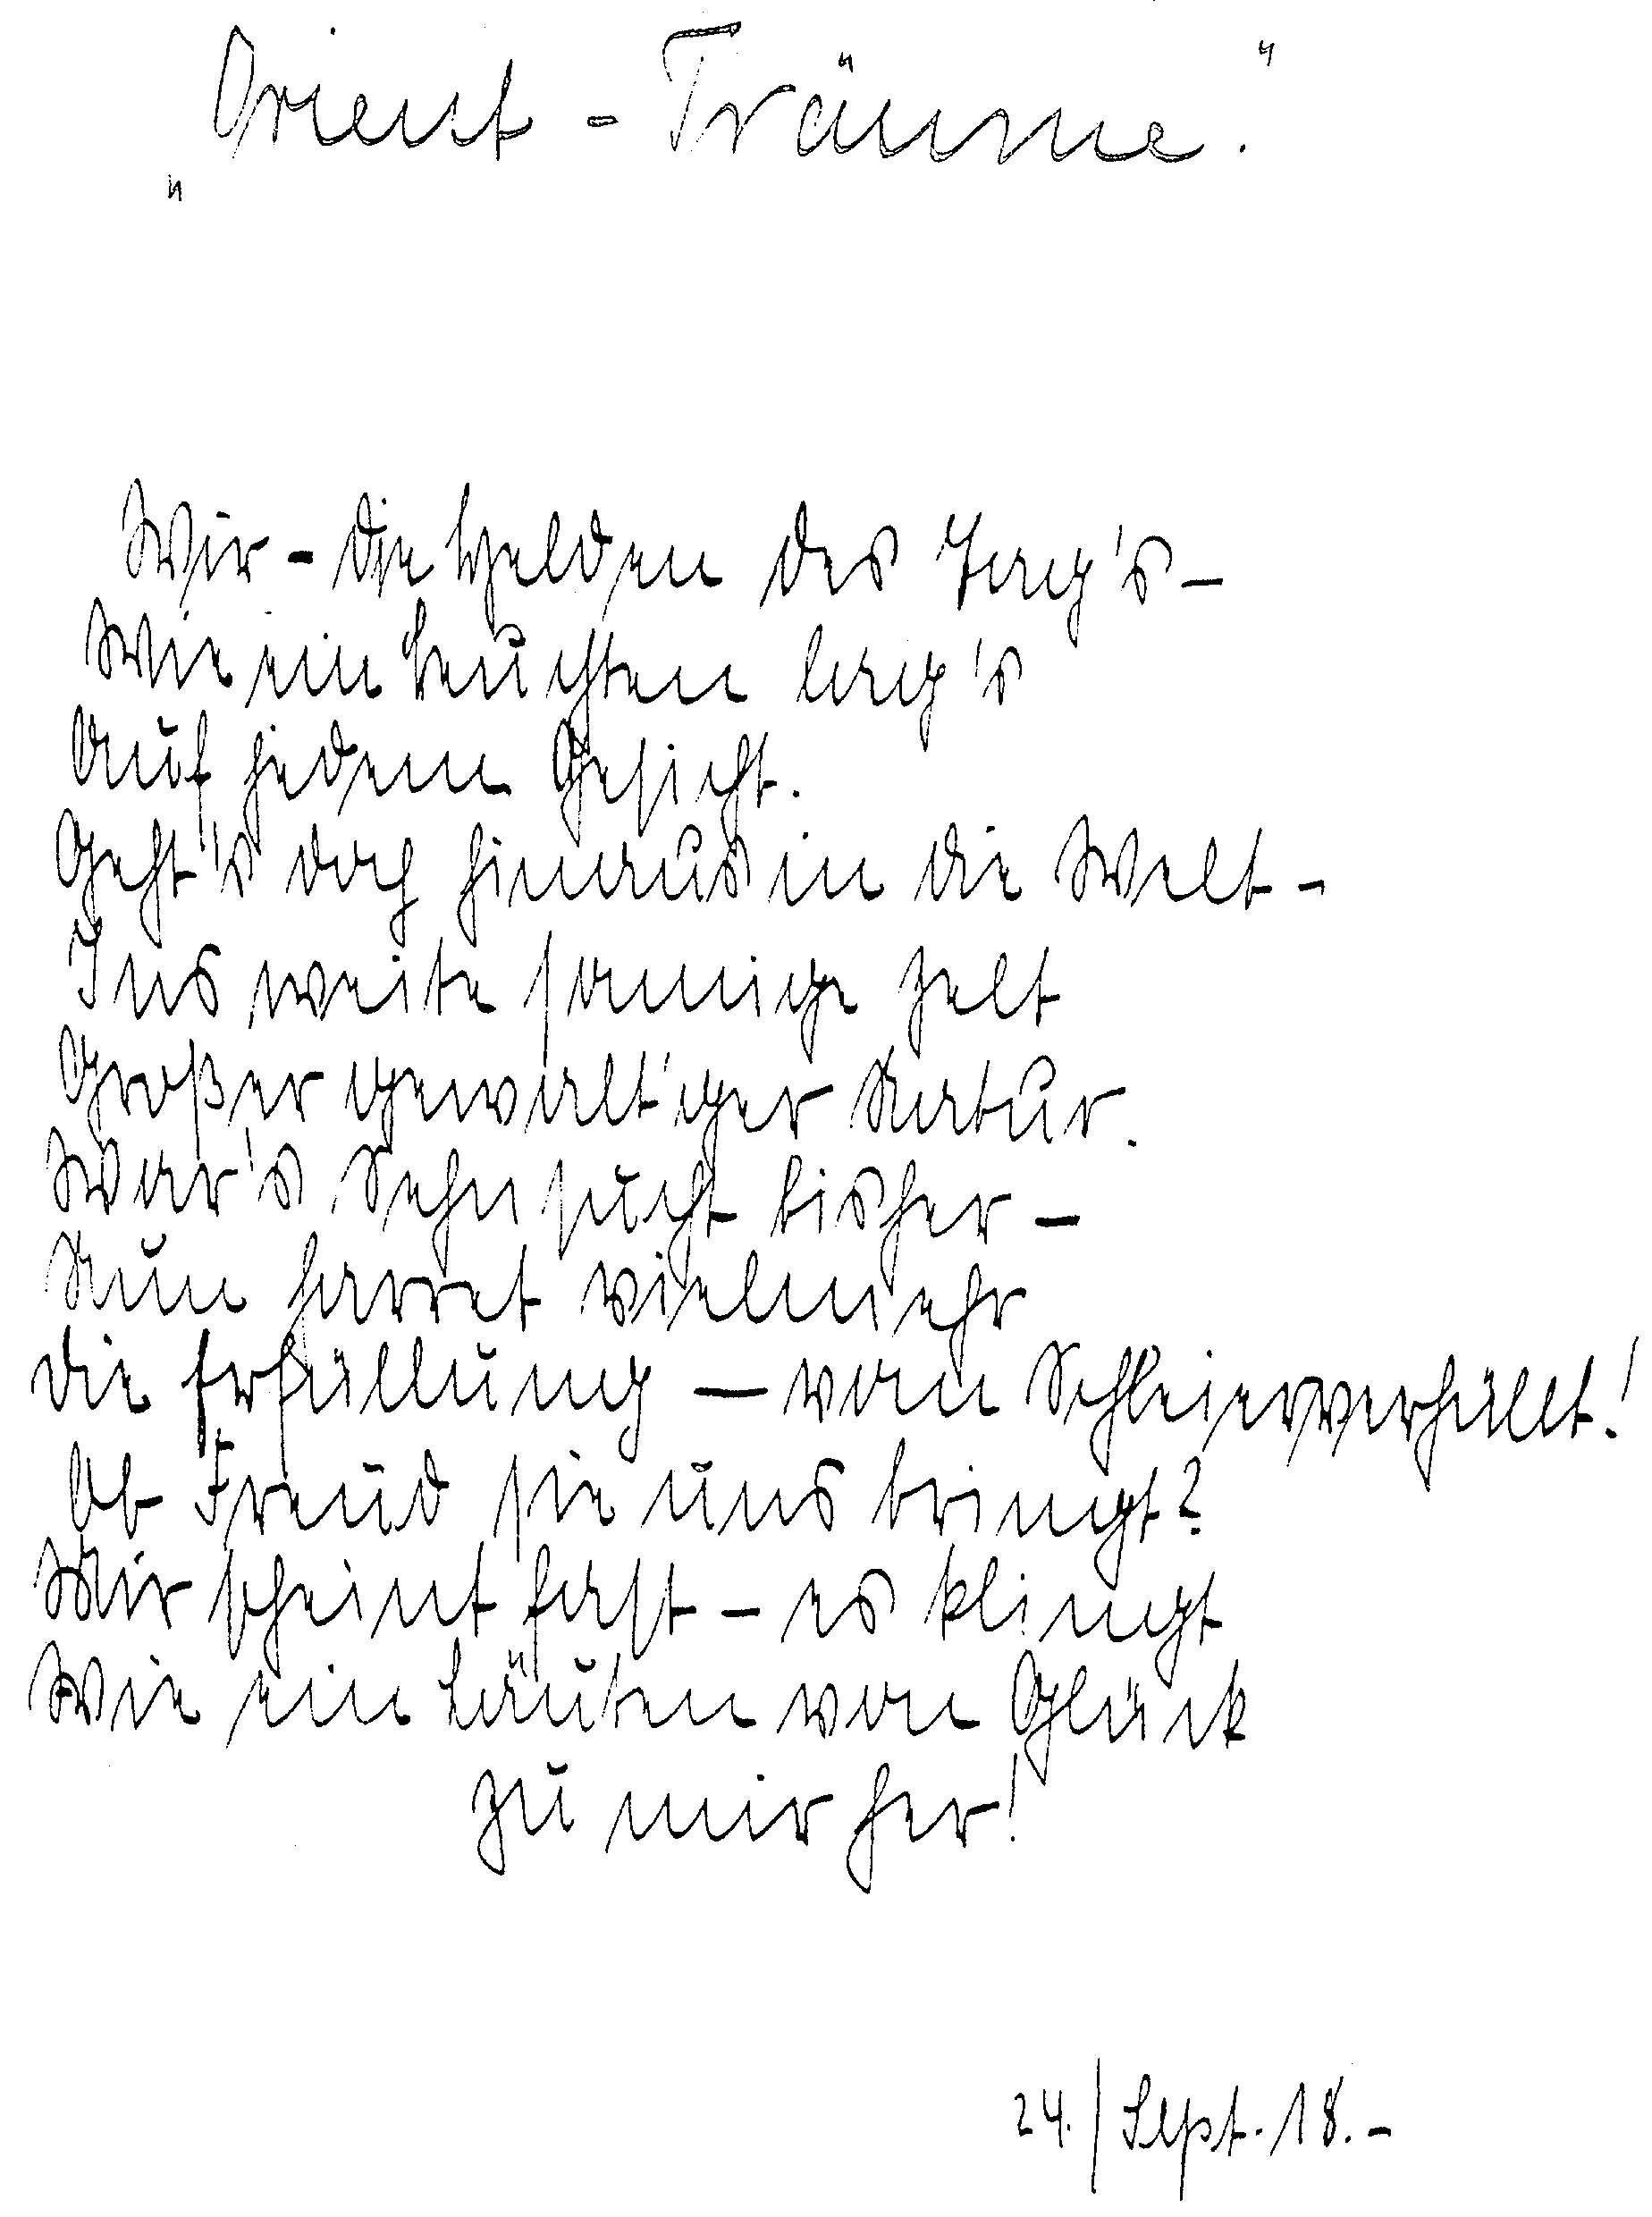 „Orient-Träume."
Wir - die Helden des Tag's -
Wie ein Leuchten lag's
Auf jedem Gesicht.
Geht's doch hinaus in die Welt -
Ins weite sonnige Zelt
Großer gewalt'ger Natur.
War's Sehnsucht bisher -
Nun harret vielmehr
Die Erfüllung - von Schleierverhüllt!
Ob Freud sie uns bringt?
Mir scheint fast - es klingt
Wie ein Läuten von Glück
zu mir her!
24./Sept. 18.-